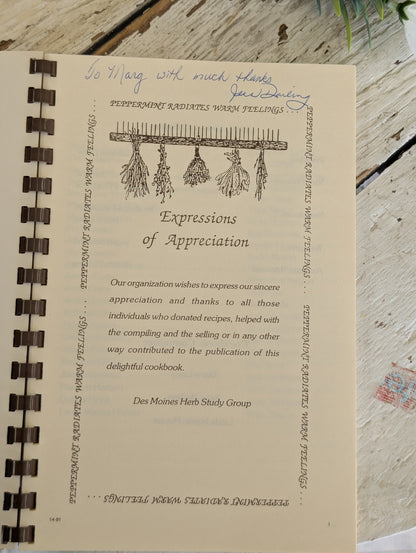 To Marg with much thanks
Jane Darling
PEPPERMINT RADIATES WARM FEELINGS . . .
PEPPERMINT RADIATES WARM FEELINGS . . .
PEPPERMINT RADIATES WARM FEELINGS . . .
Expressions
of Appreciation
Our organization wishes to express our sincere
appreciation and thanks to all those
individuals who donated recipes, helped with
the compiling and the selling or in any other
way contributed to the publication of this
delightful cookbook.
Des Moines Herb Study Group
PEPPERMINT RADIATES WARM FEELINGS . . .
PEPPERMINT RADIATES WARM FEELINGS . . .
PEPPERMINT RADIATES WARM FEELINGS . . .
14-91